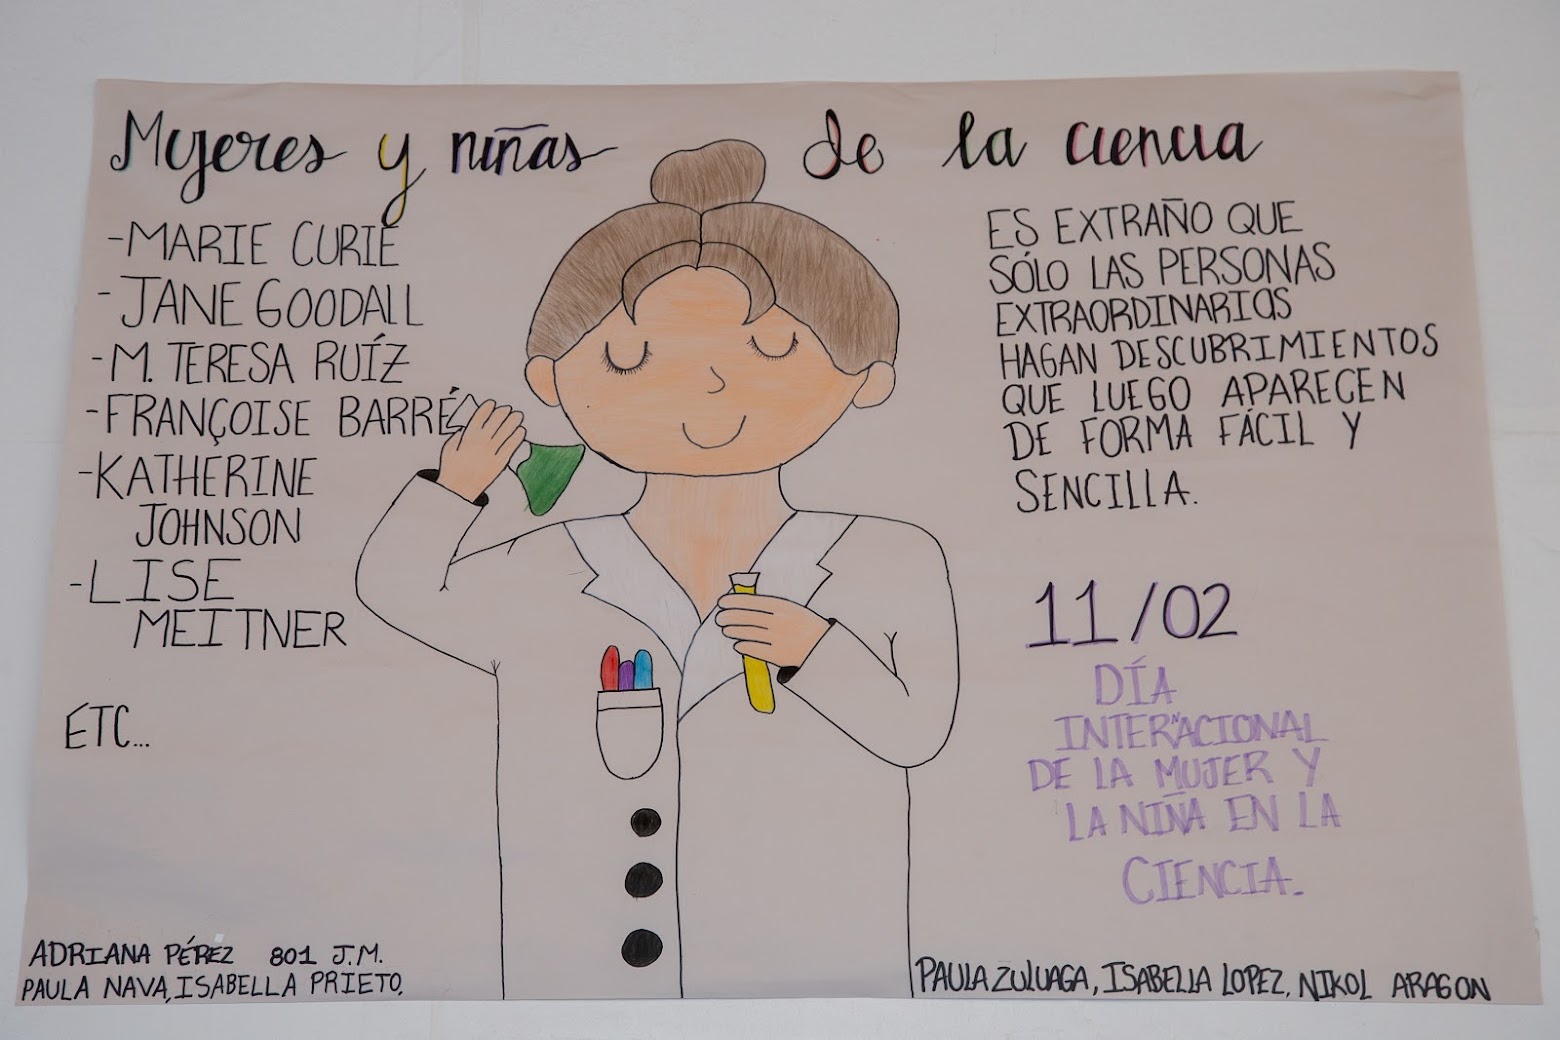 Mujeres y niñas de la ciencia
-MARIE CURIE
-JANE GOODALL
-M. TERESA RUÍZ
-FRANÇOISE BARRÉ
-KATHERINE
JOHNSON
-LISE
MEITNER
ETC...
ES EXTRAÑO QUE
SÓLO LAS PERSONAS
EXTRAORDINARIAS
HAGAN DESCUBRIMIENTOS
QUE LUEGO APARECEN
DE FORMA FÁCIL Y
SENCILLA.
11/02
DÍA
INTERNACIONAL
DE LA MUJER Y
LA NIÑA EN LA
CIENCIA.
ADRIANA PÉREZ 801 J.M.
PAULA NAVA, ISABELLA PRIETO,
PAULA ZULUAGA, ISABELLA LOPEZ, NIKOL ARAGON